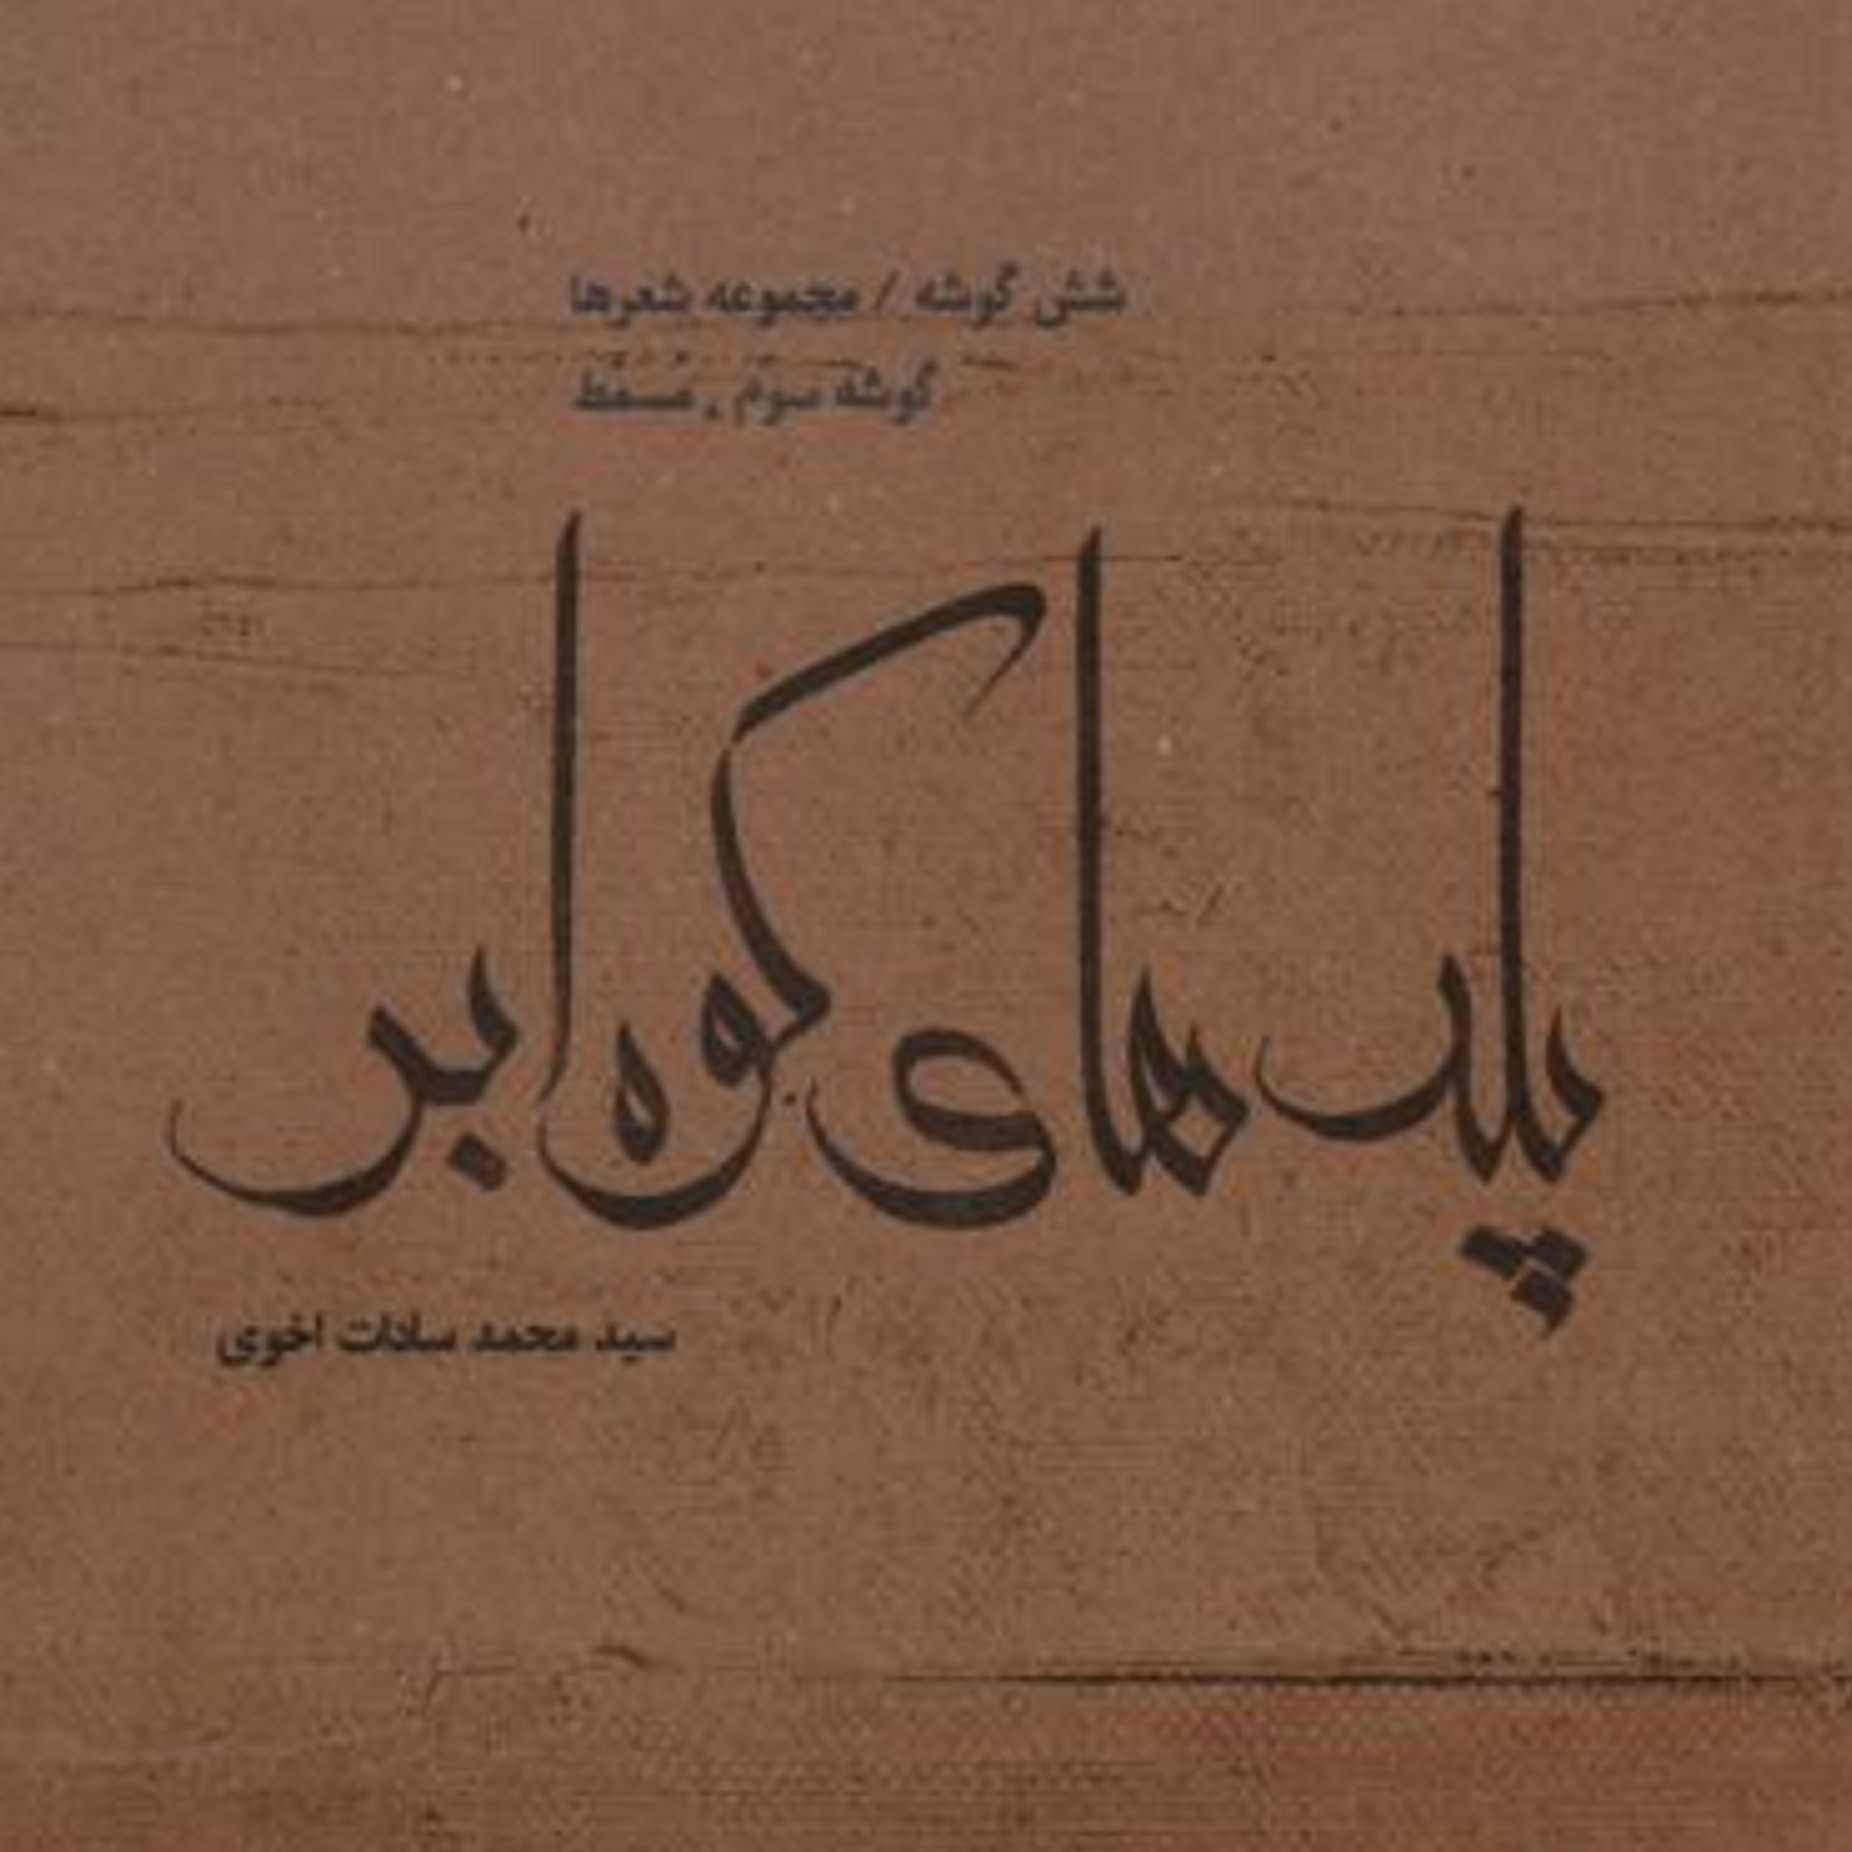 شش گوشه / مجموعه شعرها
گوشه سوم . مُسمّط
پله های کوه ابر
سید محمد سادات اخوی